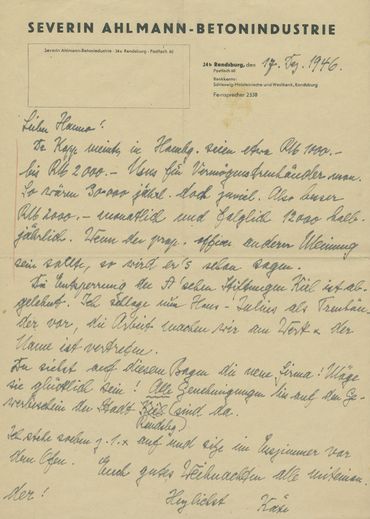 SEVERIN AHLMANN-BETONINDUSTRIE
Severin Ahlmann-Betonindustrie · 24b Rendsburg · Postfach 60
24b Rendsburg, den 17. Dez. 1946.
Postfach 60
Bankkonto:
Schleswig-Holsteinische und Westbank, Rendsburg
Fernsprecher 2338
Lieber Hanno!
Dr. Kapp meint, in Hambg. seien etwa RM 1000.-
bis RM 2000.- Usus für Vermögenstreuhänder mon.
So wären 30 000 jährl. doch zuviel. Also besser
RM 2000.- monatlich und folglich 12000 halb-
jährlich. Wenn der prop. officer anderer Meinung
sein sollte, so wird er's schon sagen.
Die Entsperrung der A'schen Stiftungen Kiel ist ab-
gelehnt. Ich schlage nun Hans-Julius als Treuhän-
der vor, die Arbeit machen wir am Wert & der
Name ist vertreten.
Du siehst auf diesem Bogen die neue Firma! Möge
sie glücklich sein! Alle Genehmigungen bis auf den Ge-
werbeschein der Stadt Kiel sind da.
(Rendsbg.)
Ich stehe soeben z. 1. x auf und sitze im Esszimmer vor
dem Ofen. Euch gutes Weihnachten alle miteinan-
der!
Herzlichst Käte